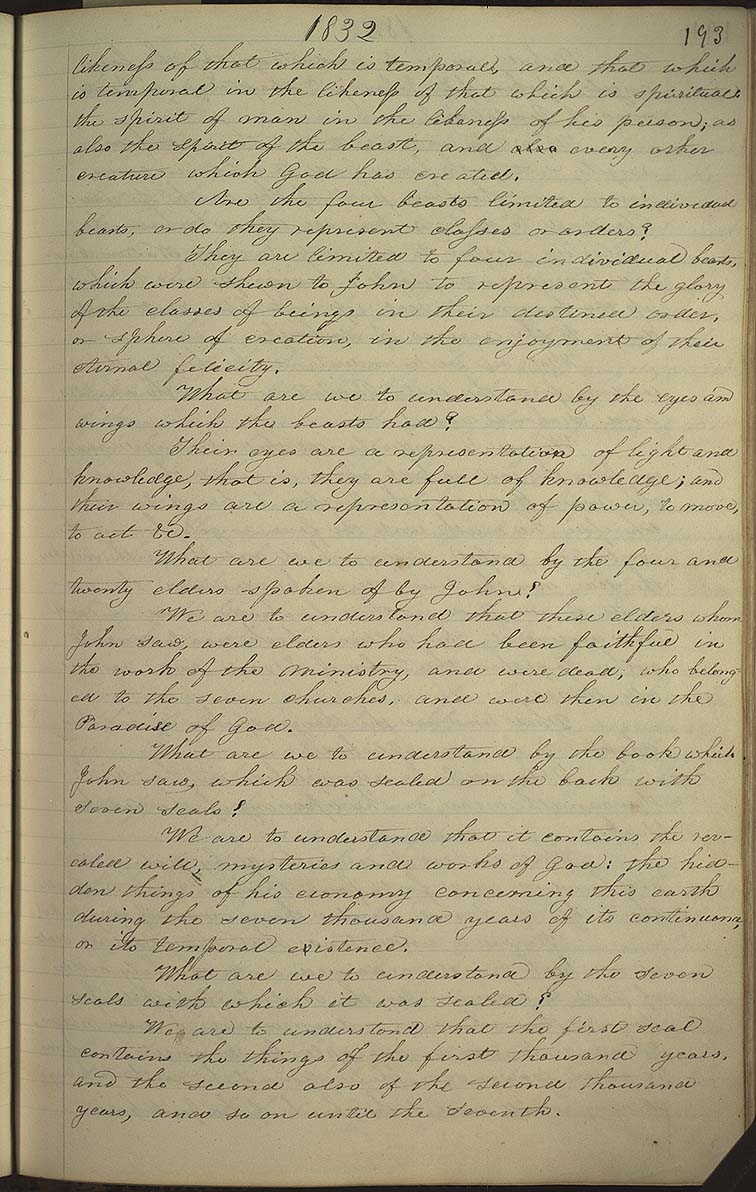 1832 193
likeness of that which is temporal, and that which
is temporal in the likeness of that which is spiritual:
the spirit of man in the likeness of his person; as
also the spirit of the beast, and also every other
creature which God has created.
Are the four beasts limited to individual
beasts, or do they represent classes or orders?
They are limited to four individual beasts,
which were shewn to John to represent the glory
of the classes of beings in their destined order,
or sphere of creation, in the enjoyment of their
eternal felicity.
What are we to understand by the eyes and
wings which the beasts had?
Their eyes are a representation of light and
knowledge, that is, they are full of knowledge; and
their wings are a representation of power, to move,
to act &c.
What are we to understand by the four and
twenty elders spoken of by John?
We are to understand that these elders whom
John saw, were elders who had been faithful in
the work of the ministry, and were dead, who belong-
ed to the seven churches, and were then in the
Paradise of God.
What are we to understand by the book which
John saw, which was sealed on the back with
seven seals?
We are to understand that it contains the rev-
ealed will, mysteries and works of God: the hid-
den things of his economy concerning this earth
during the seven thousand years of its continuance,
or its temporal existence.
What are we to understand by the seven
seals with which it was sealed?
We are to understand that the first seal
contains the things of the first thousand years,
and the second also of the second thousand
years, and so on until the seventh.